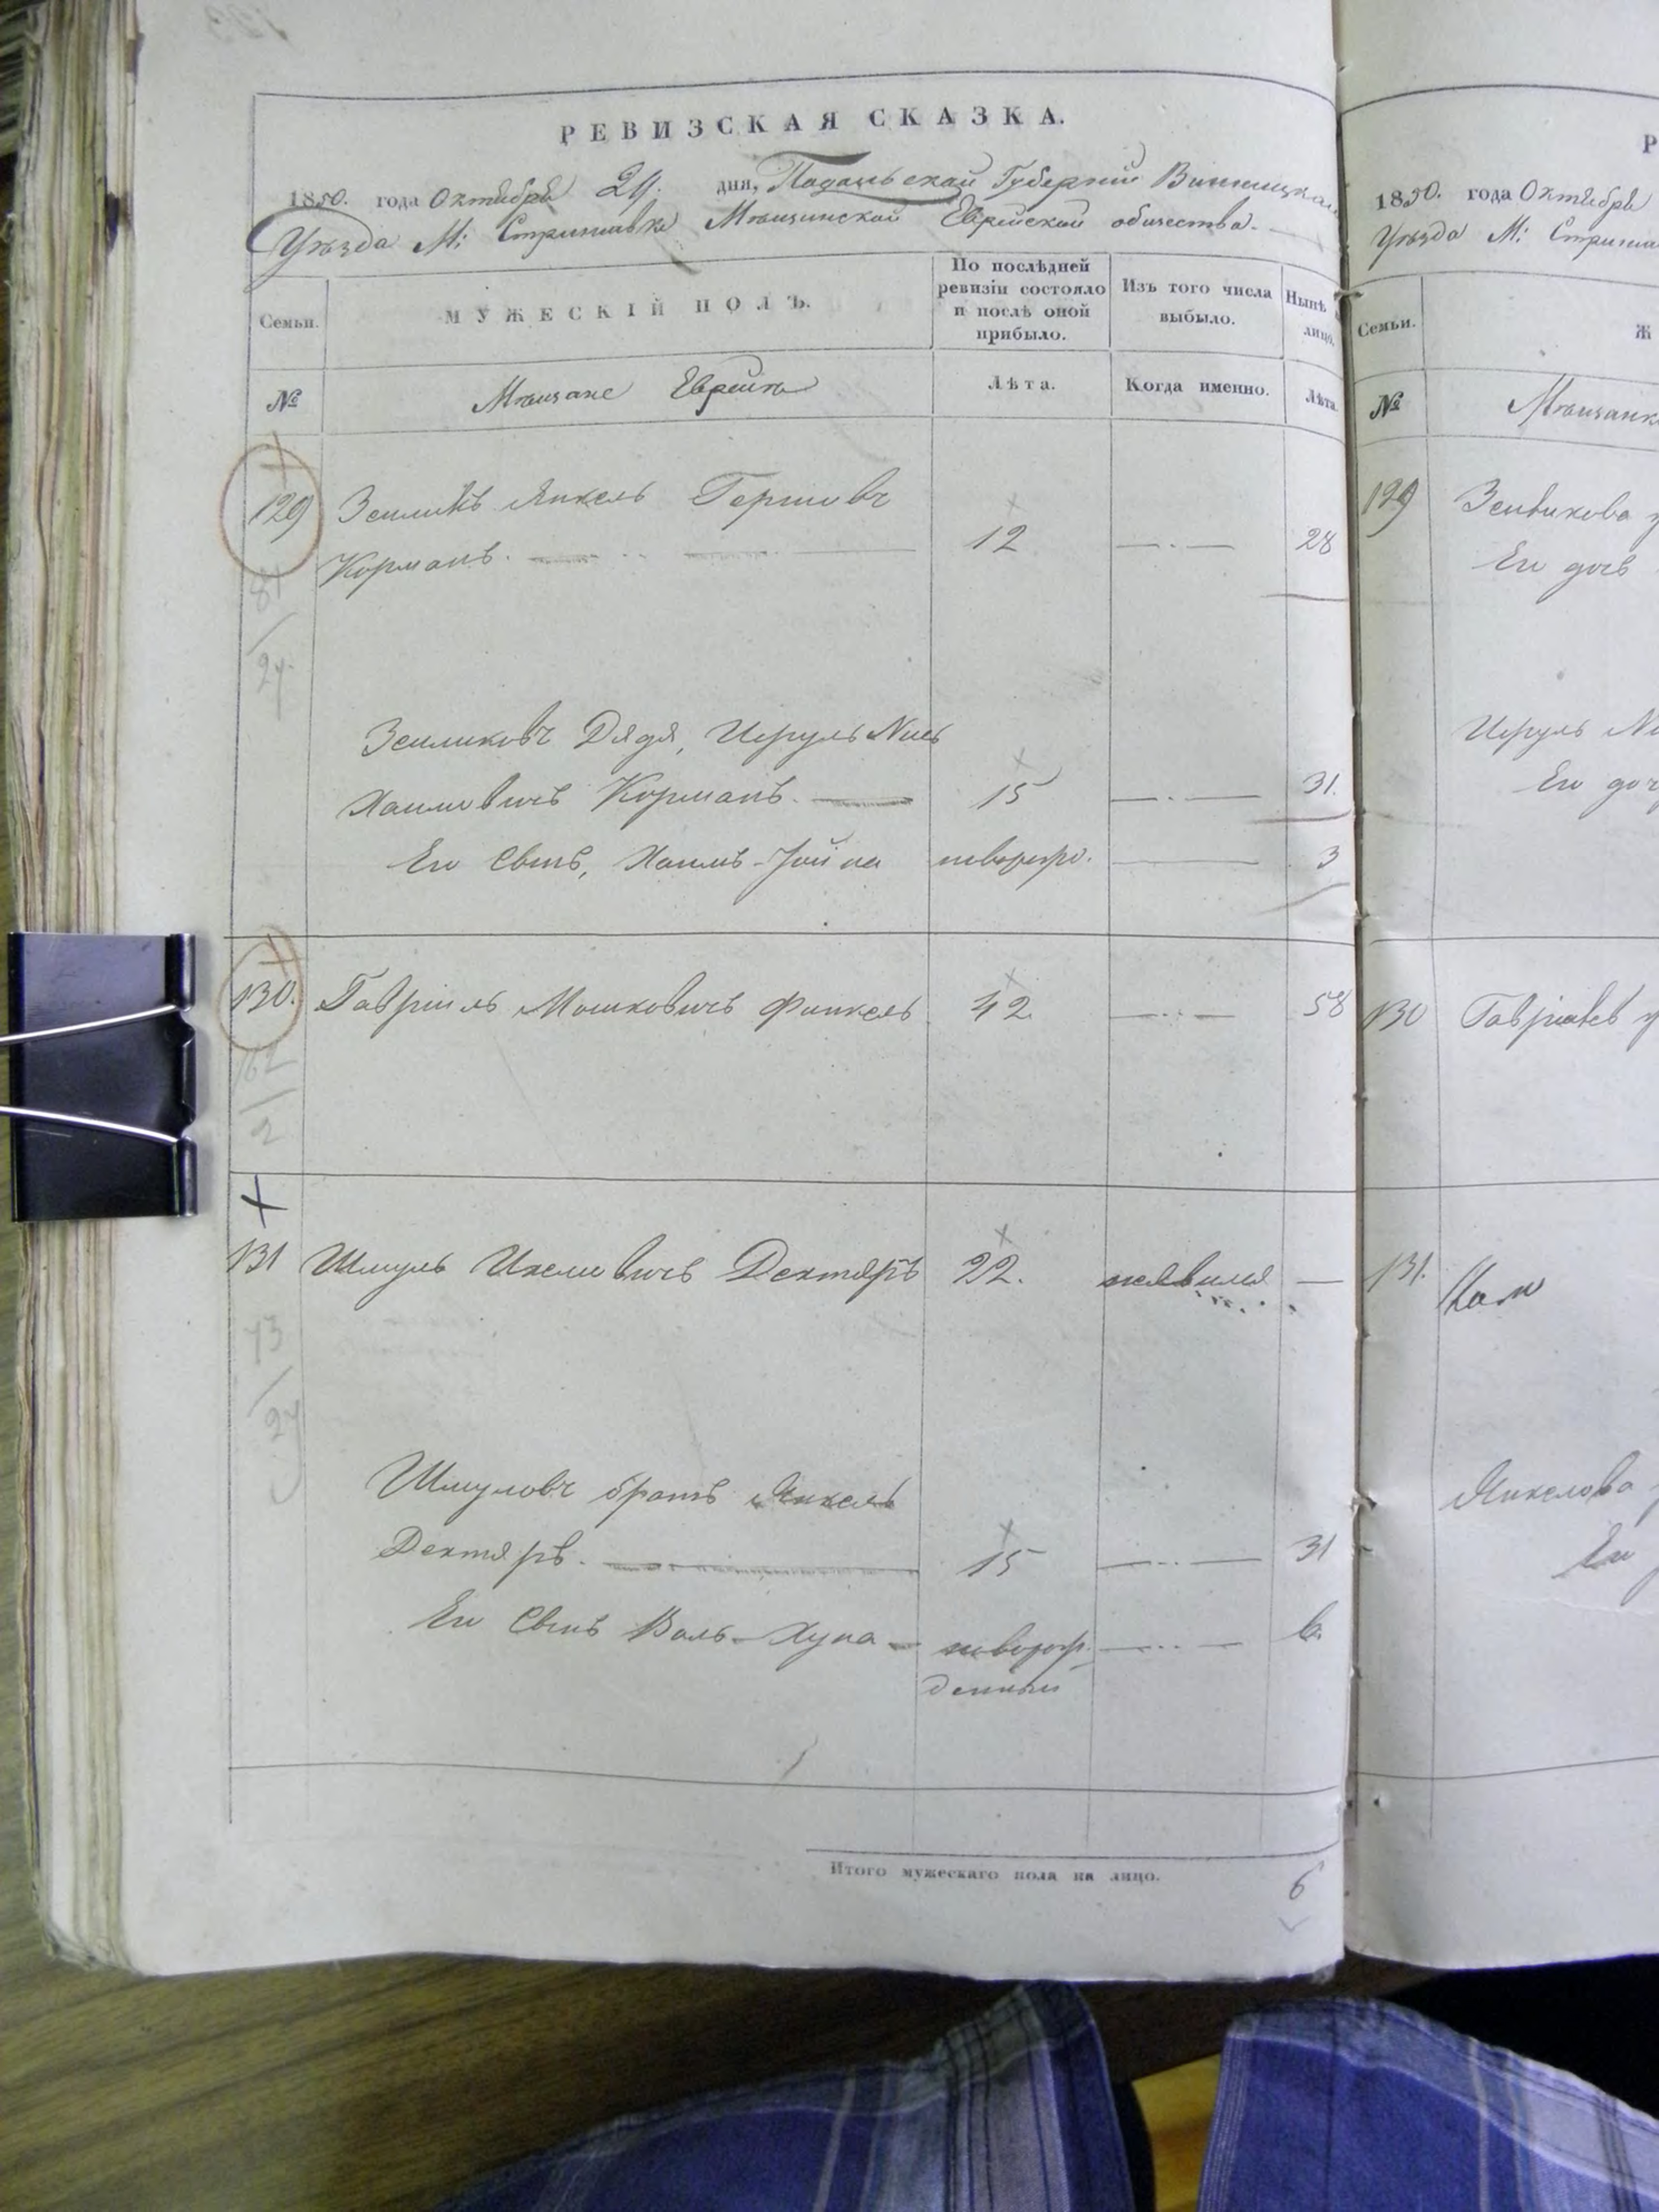 РЕВИЗСКАЯ СКАЗКА.
1850. года Октября 24. дня, Подольской Губернии Винницкаго
Уѣзда М: Стрижавка Мѣщанской Еврейской общества.
Семьи.
МУЖЕСКІЙ ПОЛЪ.
По послѣдней ревизіи состояло и послѣ оной прибыло.
Изъ того числа выбыло.
Нынѣ лицо.
№
Мѣщане Евреи
Лѣта.
Когда именно.
Лѣта.
129 Зейликъ Янкель Гершовъ
Корманъ. 12 28
81
24
Зейликовъ Дядя, Исруль Нись
Хаимовичъ Корманъ. 15 31.
Ею Сынъ, Хаимъ-Іойна новорож. 3
130. Гавріиль Мошковичъ Финкель 42 58
2
131 Шмуль Ицковичъ Дехтяръ 22. неявился
73
24
Шмуловъ братъ Янкель
Дехтяръ. 15 31
Ею Сынъ Воль-Хуна новорож
денный 6.
Итого мужескаго пола на лицо. 6
Р
1850. года Октября
Уѣзда М: Стрижа
Семьи.
Ж
№
Мѣщанк
129 Зейликова
Ею дочь
Исруль Ни
Ею доч
130 Гавріилев
131.
Янкелова
Ею